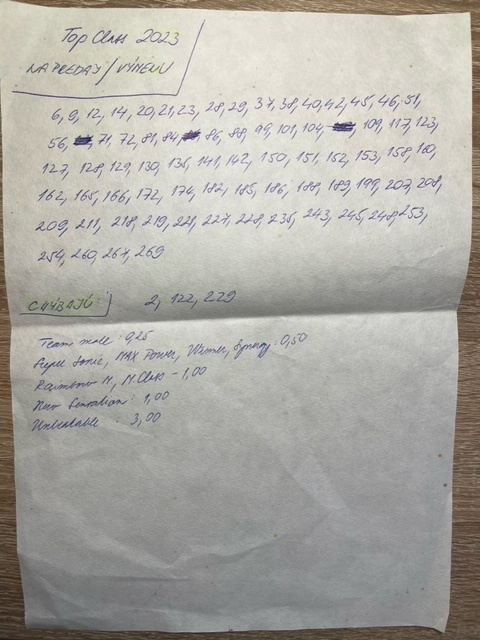 Top Class 2023
NA PREDAJ / VÝMENU
6, 9, 12, 14, 20, 21, 23, 28, 29, 37, 38, 40, 42, 45, 46, 51,
56, 71, 72, 81, 84, 86, 88, 99, 101, 104, 109, 117, 123,
127, 128, 129, 130, 136, 141, 142, 150, 151, 152, 153, 158, 160,
162, 165, 166, 172, 174, 182, 185, 186, 188, 189, 199, 207, 208,
209, 211, 218, 219, 221, 227, 228, 235, 243, 245, 248, 253,
254, 260, 267, 269
CHÝBAJÚ: 2, 122, 229
Team mate : 0,25
Super Sonic, MAX Power, Winner, Synergy : 0,50
M, M. Class - 1,00
New Sensation : 1,00
Unbeatable : 3,00